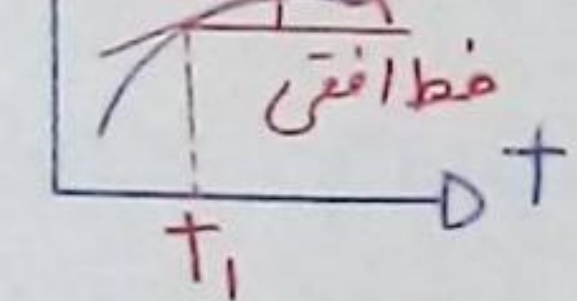 خط افقی
t
t₁